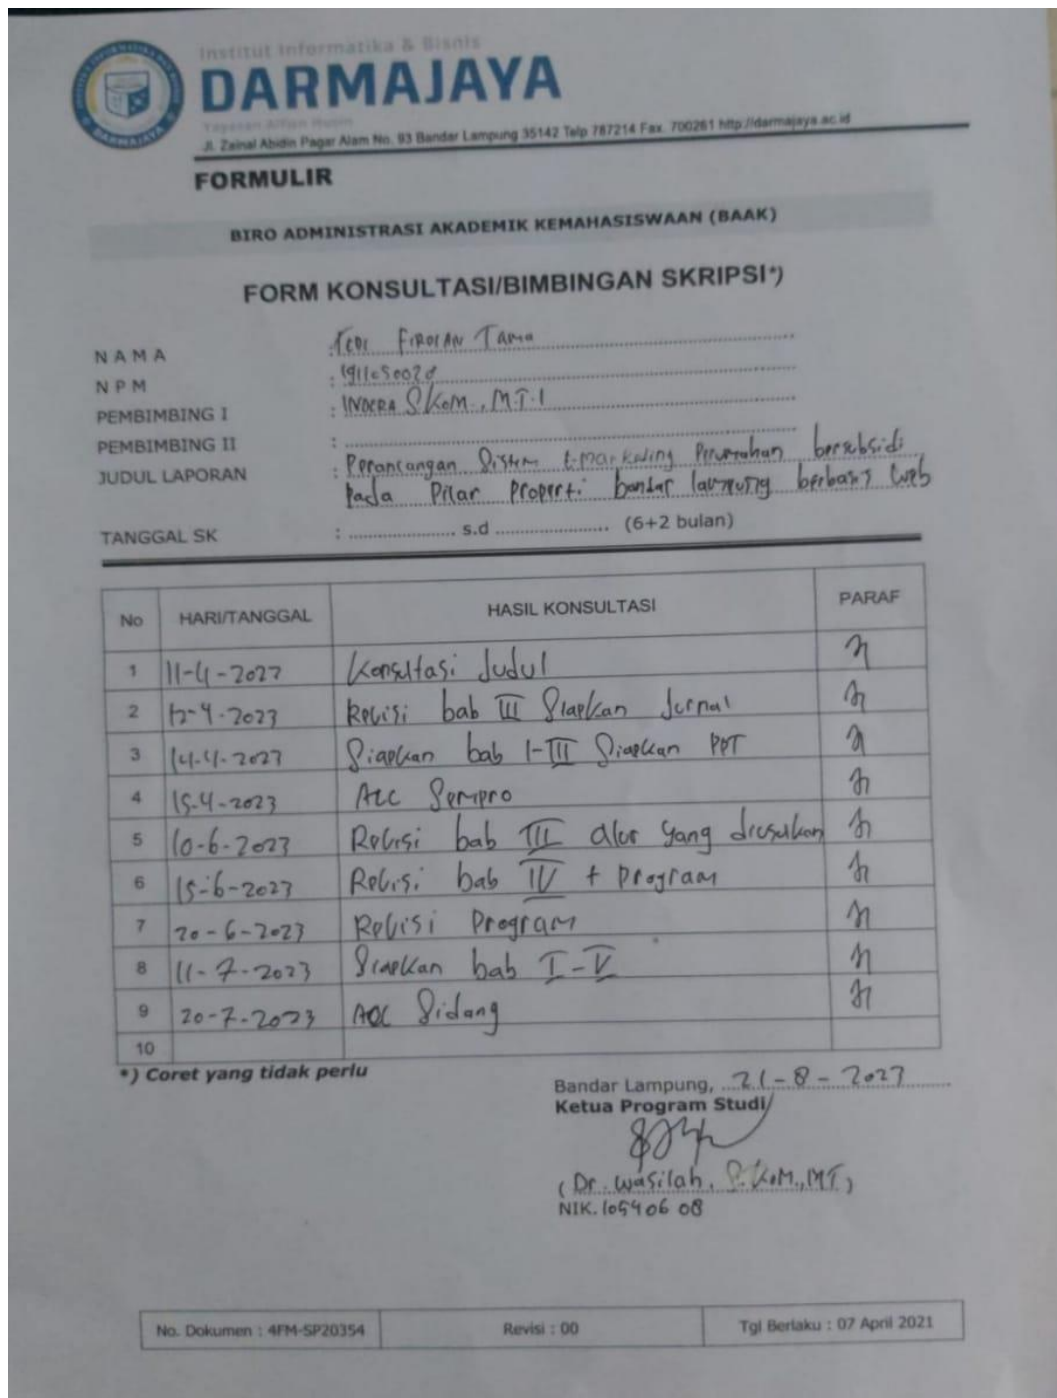 Institut Informatika & Bisnis
DARMAJAYA
Yayasan Alfian Husin
Jl. Zainal Abidin Pagar Alam No. 93 Bandar Lampung 35142 Telp 787214 Fax. 700261 http://darmajaya.ac.id
FORMULIR
BIRO ADMINISTRASI AKADEMIK KEMAHASISWAAN (BAAK)
FORM KONSULTASI/BIMBINGAN SKRIPSI*)
NAMA : Tama
NPM :
PEMBIMBING I : INDERA S.KOM., M.T.I
PEMBIMBING II :
JUDUL LAPORAN : Perancangan Sistem E-marketing Perumahan bersubsidi
pada Pilar Properti bandar lampung berbasis Web
TANGGAL SK : .................... s.d .................... (6+2 bulan)
No HARI/TANGGAL HASIL KONSULTASI PARAF
1 11-4-2023 Konsultasi Judul
2 12-4-2023 Revisi bab III Siapkan Jurnal
3 14-4-2023 Siapkan bab I-III Siapkan PPT
4 15-4-2023 Acc Sempro
5 10-6-2023 Revisi bab III alur yang diusulkan
6 15-6-2023 Revisi bab IV + program
7 20-6-2023 Revisi Program
8 11-7-2023 Siapkan bab I-V
9 20-7-2023 ACC Sidang
10
*) Coret yang tidak perlu
Bandar Lampung, 21-8-2023
Ketua Program Studi
(Dr. Wasilah, S.Kom., MT)
NIK.
No. Dokumen : 4FM-SP20354 Revisi : 00 Tgl Berlaku : 07 April 2021